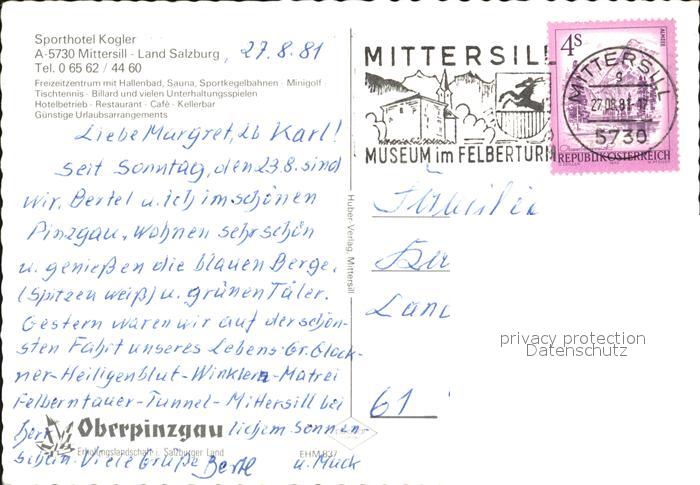 Sporthotel Kogler
A-5730 Mittersill - Land Salzburg, 27.8.81
Tel. 0 65 62 / 44 60
Freizeitzentrum mit Hallenbad, Sauna, Sportkegelbahnen · Minigolf
Tischtennis · Billard und vielen Unterhaltungsspielen
Hotelbetrieb · Restaurant · Café · Kellerbar
Günstige Urlaubsarrangements
Liebe Margret, lb Karl!
Seit Sonntag, den 23.8. sind
wir, Bertel u. ich im schönen
Pinzgau, wohnen sehr schön
u. genießen die blauen Berge,
(Spitzen weiß) u. grünen Täler.
Gestern waren wir auf der schön-
sten Fahrt unseres Lebens. Gr. Glock-
ner-Heiligenblut-Winklern-Matrei
Felberntauer-Tunnel-Mittersill bei
herrlichem Sonnen-
Oberpinzgau
Erholungslandschaft i. Salzburger Land
EHM 837
schein. Viele Grüße Bertl u. Muck
Huber-Verlag, Mittersill
MITTERSILL
MUSEUM im FELBERTURM
4S
ALMSEE
MITTERSILL
g
27.08.81-17
5730
REPUBLIK ÖSTERREICH
Familie
Land
61
privacy protection
Datenschutz